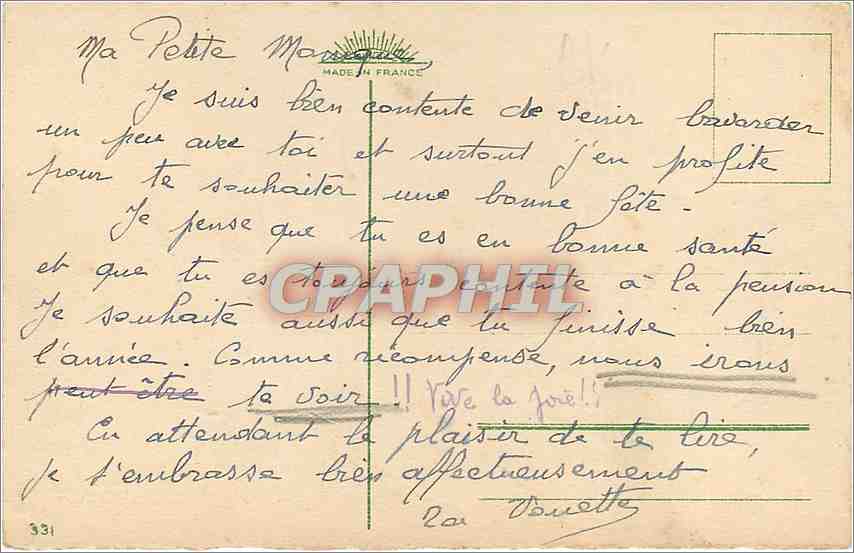 Ma Petite
MADE IN FRANCE
Je suis bien contente de venir bavarder
un peu avec toi et surtout j'en profite
pour te souhaiter une bonne fête -
Je pense que tu es en bonne santé
et que tu es toujours contente à la pension
CPAPHIL
Je souhaite aussi que tu finisse bien
l'année. Comme récompense, nous irons
peut être te voir !! Vive la joie!!
En attendant le plaisir de te lire,
je t'embrasse bien affectueusement
331